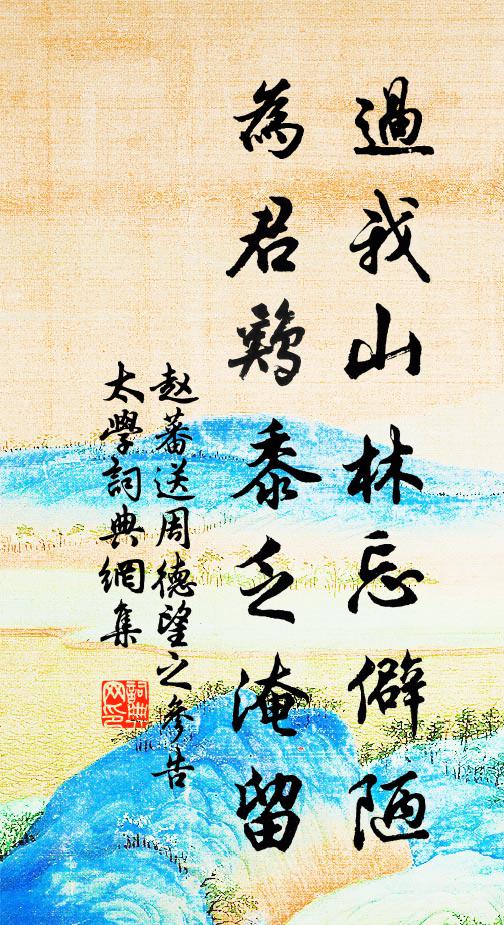 過我山林忘僻陋
為君鷄黍乏淹留
赵蕃送周德望之參告
太學詞典網集
詞典网印